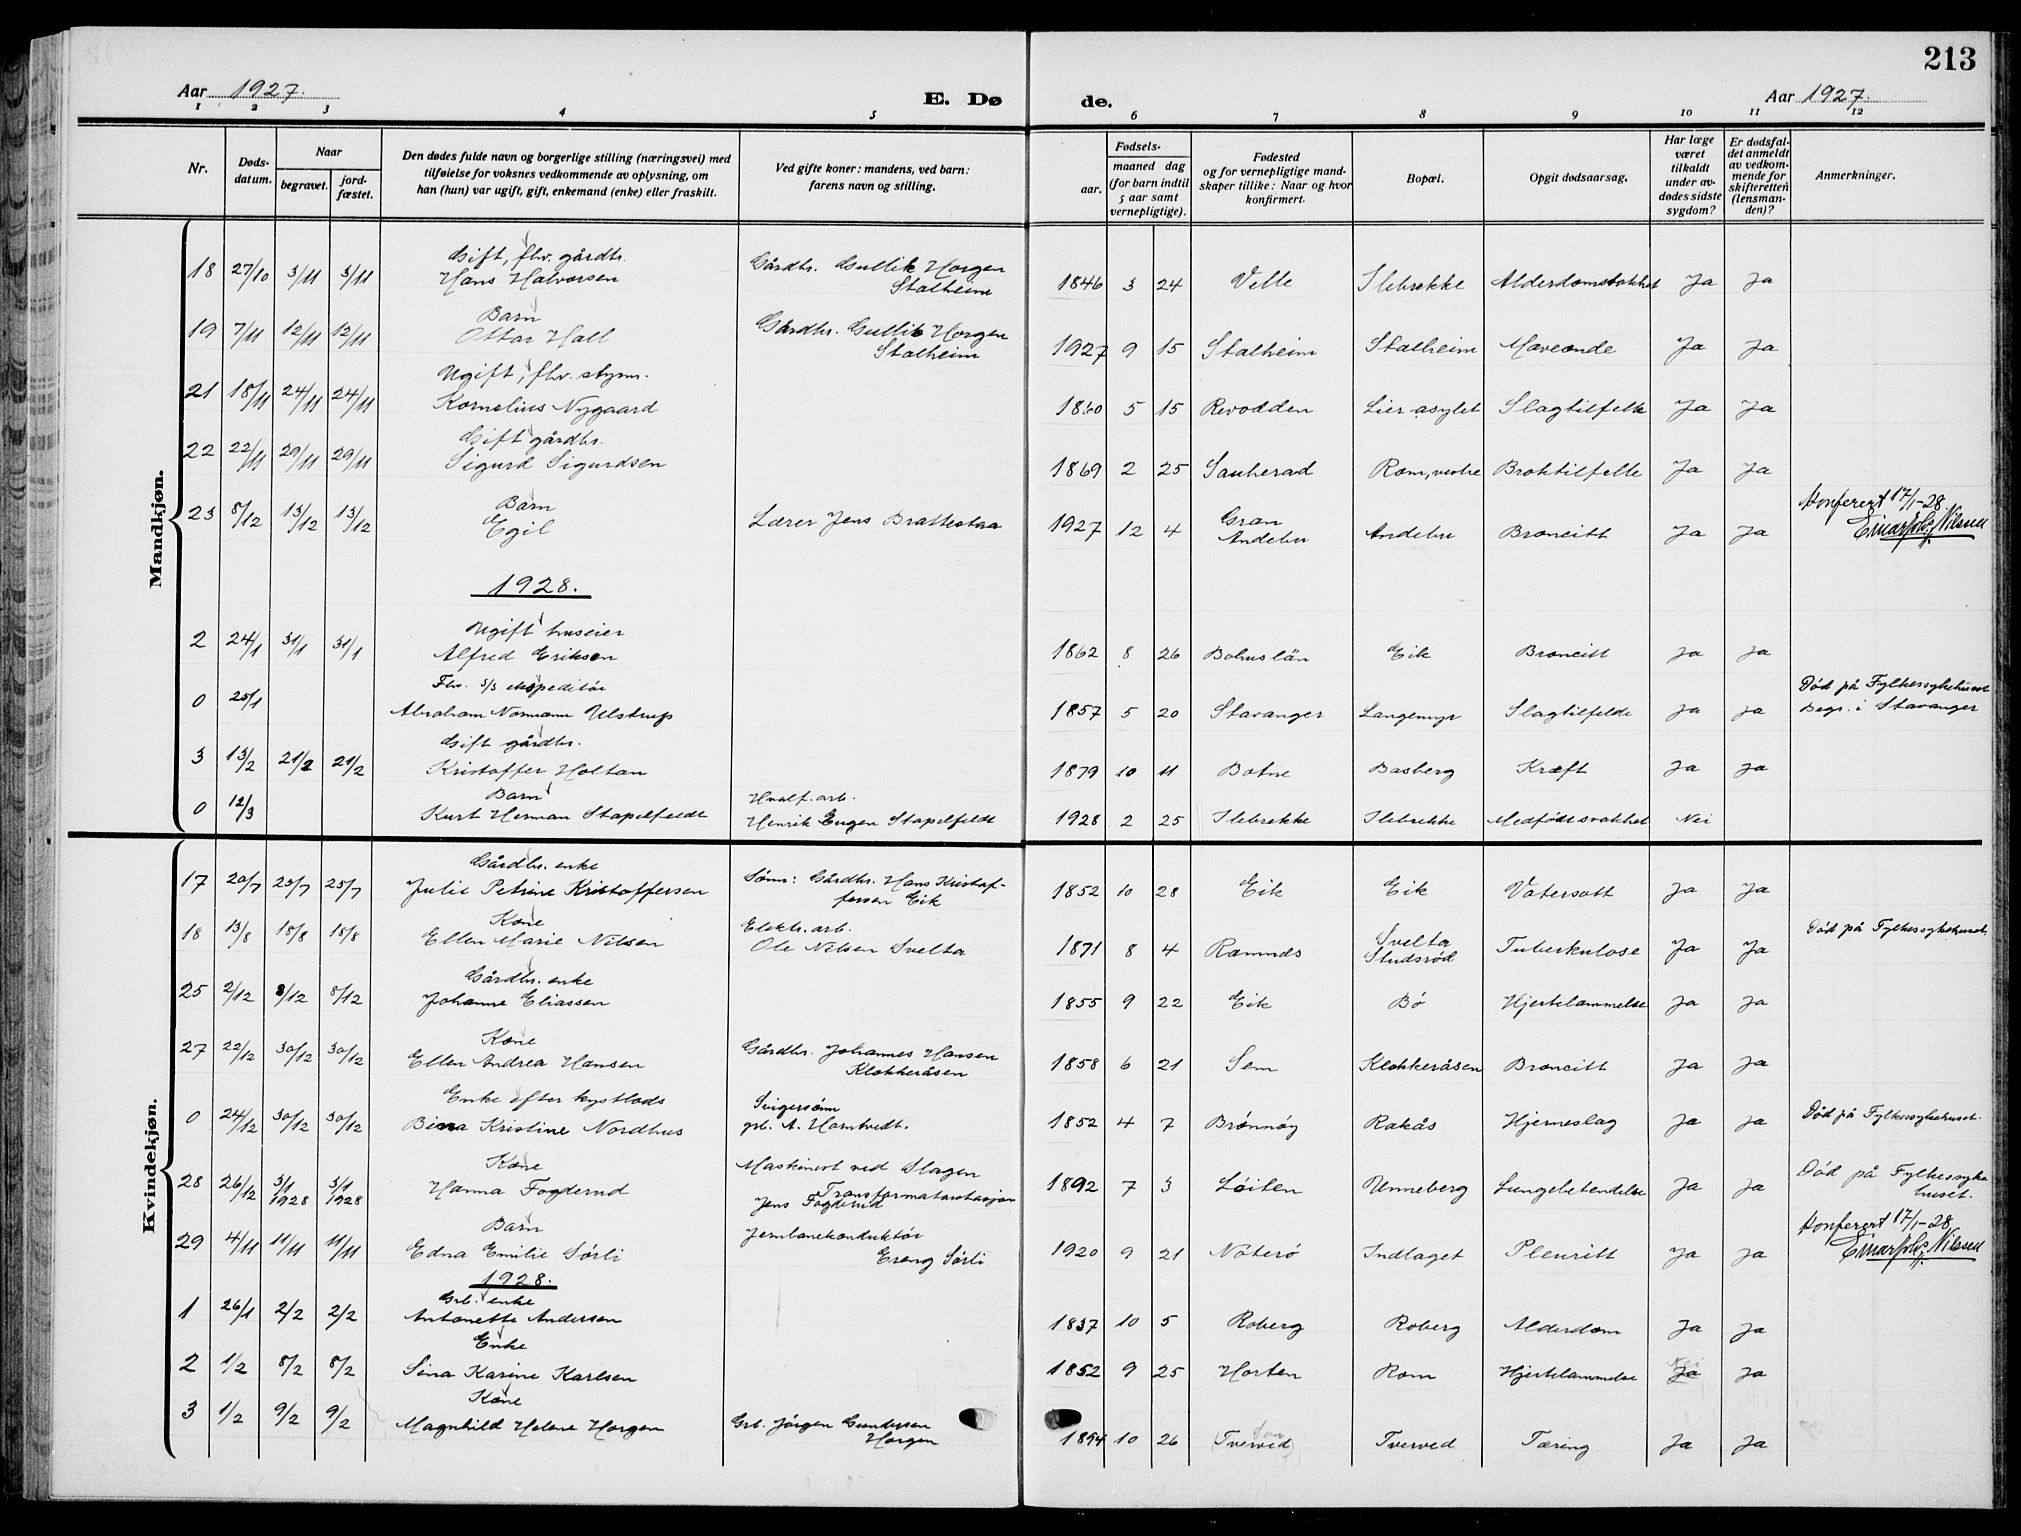 213
Aar 1927. E. Dø de. Aar 1927.
1 2 3 4 5 6 7 8 9 10 11 12
Nr.
Døds-
datum.
Naar
begravet.
jord-
fæstet.
Den dødes fulde navn og borgerlige stilling (næringsvei) med
tilføielse for voksnes vedkommende av oplysning, om
han (hun) var ugift, gift, enkemand (enke) eller fraskilt.
Ved gifte koner: mandens, ved barn:
farens navn og stilling.
Fødsels-
aar.
maaned dag
(for barn indtil
5 aar samt
vernepligtige).
Fødested
og for vernepligtige mand-
skaper tillike: Naar og hvor
konfirmert.
Bopæl.
Opgit dødsaarsag.
Har læge
været
tilkaldt
under av-
dødes sidste
sygdom?
Er dødsfal-
det anmeldt
av vedkom-
mende for
skifteretten
(lensman-
den)?
Anmerkninger.
Mandkjøn.
Gift, fhv. gårdbr. Gårdbr. Gullik Horgen
18 27/10 3/11 3/11 Hans Halvorsen Stalheim 1846 3 24 Velle Ilebrekke Ja Ja
Barn Gårdbr. Gullik Horgen
19 7/11 12/11 12/11 Ottar Hall Stalheim 1927 9 15 Stalheim Stalheim Maveonde Ja Ja
Ugift, fhv. styrm.
21 18/11 24/11 24/11 Kornelius Nygaard 1860 5 15 Revodden Lier asylet Slagtilfelle Ja Ja
Gift gårdbr.
22 22/11 29/11 29/11 Sigurd Sigurdsen 1869 2 25 Sauherad Rom, vestre Ja Ja
Barn Gran Konferert 17/1-28
23 8/12 13/12 13/12 Egil Lærer Jens Brattestaa 1927 12 4 Andebu Andebu Broncitt Ja Ja Nilssen
1928.
Ugift huseier
2 24/1 31/1 31/1 Alfred Eriksen 1862 8 26 Bohuslän Eik Broncitt Ja Ja
Fhv. s/s ekspeditør Død på Fylkessykehuset
0 25/1 Abraham Normann Ulstrup 1857 5 20 Stavanger Langemyr Slagtilfelde Ja Ja Begr. i Stavanger
Gift gårdbr.
3 13/2 21/2 21/2 Kristoffer Holtan 1879 10 11 Botne Basberg Kræft Ja Ja
Barn Hvalf. arb.
0 12/3 Kurt Herman Stapelfeldt Henrik Eugen Stapelfeldt 1928 2 25 Ilebrekke Ilebrekke Medfødt svakhet Nei
Kvindekjøn.
Gårdbr. enke Sønn: Gårdbr. Hans Kristof-
17 20/7 25/7 25/7 Julie Petrine Kristoffersen fersen Eik 1852 10 28 Eik Eik Vatersott Ja Ja
Kone Elektr. arb. Svelta Død på Fylkessykehuset.
18 13/8 18/8 18/8 Ellen Marie Nilsen Ole Nilsen Svelta 1871 8 4 Ramnes Studsrød Tuberkulose Ja Ja
Gårdbr. enke
25 2/12 8/12 8/12 Johanne Eliassen 1855 9 22 Eik Bø Hjertelammelse Ja Ja
Kone Gårdbr. Johannes Hansen
27 22/12 30/12 30/12 Ellen Andrea Hansen Klokkeråsen 1858 6 21 Sem Klokkeråsen Broncitt Ja Ja
Enke efter kystlods Svigersønn Død på Fylkessykehuset.
0 24/12 30/12 30/12 Bina Kristine Nordhus grb. A. Horntvedt. 1852 4 7 Brønnøy Rakås Hjerneslag Ja Ja
Kone Maskinert ved Slagen Død på Fylkessyke
28 26/12 3/1 1928 3/1 1928 Hanna Fogderud Transformatorstasjon Jens Fogderud 1892 7 3 Løiten Unneberg Lungebetendelse Ja Ja huset.
Barn Jernbanekonduktør Konferert 17/1-28
29 4/11 11/11 11/11 Edna Emilie Sørli Sørli 1920 9 21 Nøterø Indlaget Pleuritt Ja Ja Nilssen
1928.
Grb. enke
1 26/1 2/2 2/2 Antonette Andersen 1837 10 5 Roberg Roberg Alderdom Ja Ja
Enke
2 1/2 8/2 8/2 Sina Karine Karlsen 1852 9 25 Horten Rom Hjertelammelse Nei Ja Ja
Kone Grb. Jørgen Gundersen
3 1/2 9/2 9/2 Magnhild Helene Horgen Horgen 1894 10 26 (Tverved) Tverved Tæring Ja Ja